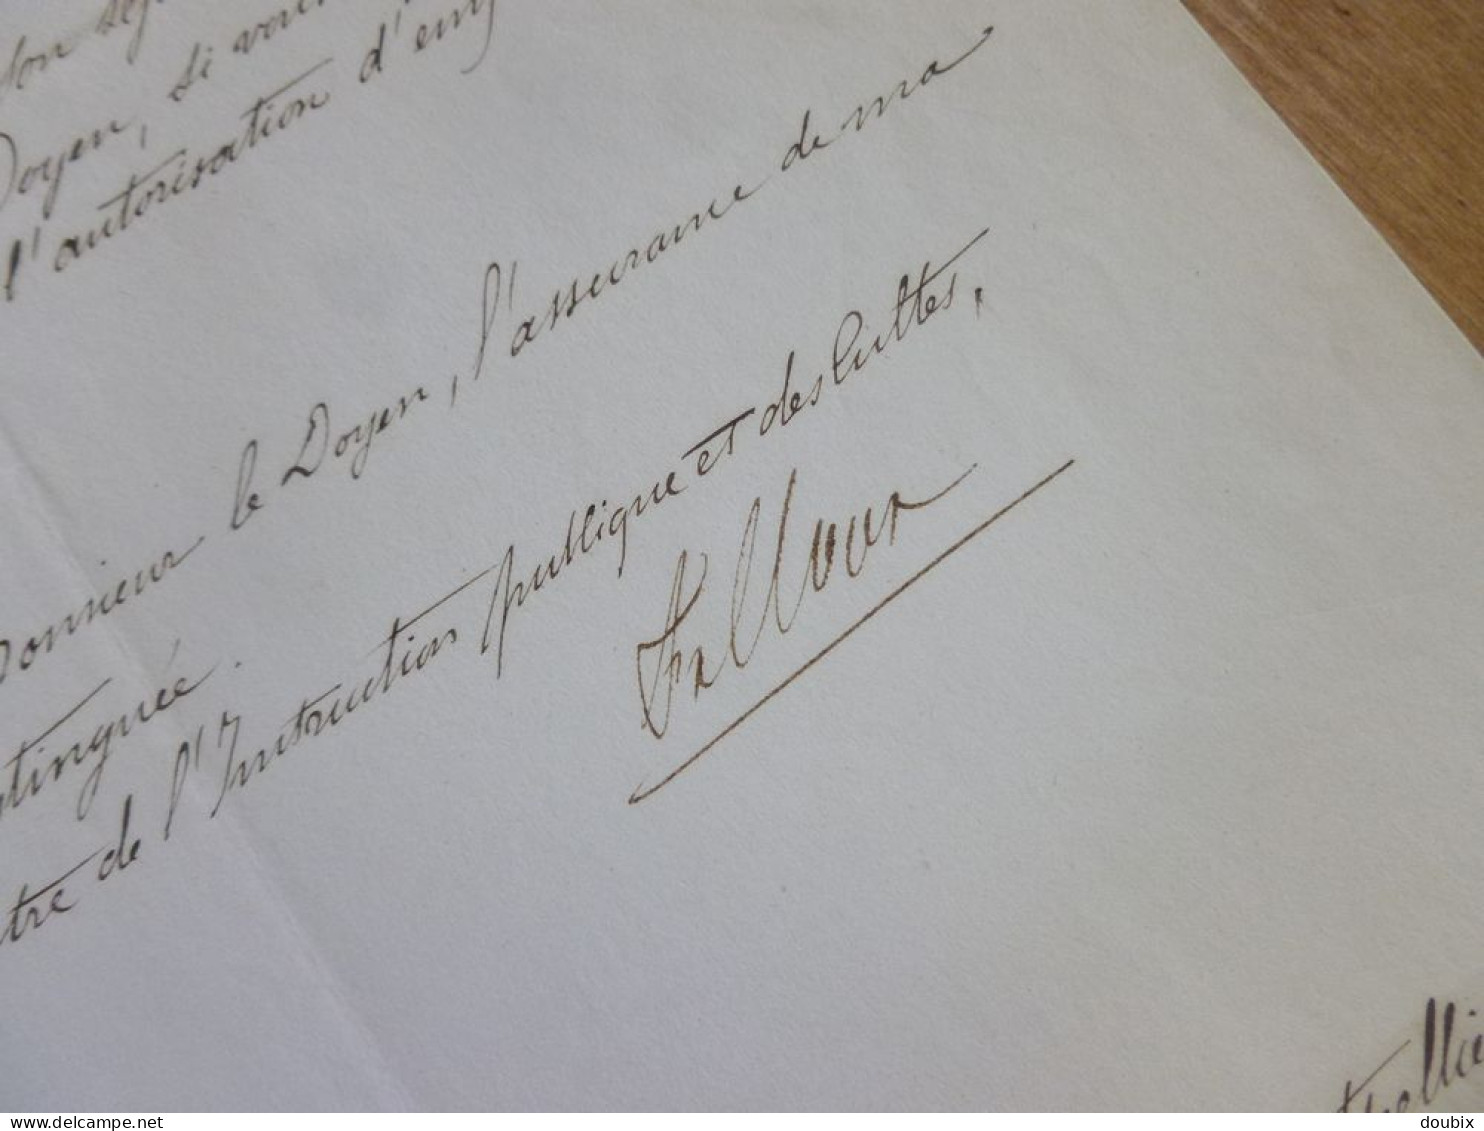 Doyen, si
l'autorisation d'em
Monsieur le Doyen, l'assurance de ma
tinguée.
tre de l'Instruction publique et des Cultes,
Falloux
pellie
delcampe.net
doubix